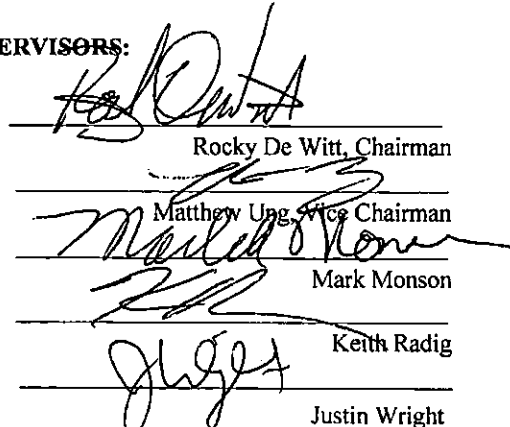 ERVISORS:
Rocky De Witt, Chairman
Matthew Ung, Vice Chairman
Mark Monson
Keith Radig
Justin Wright